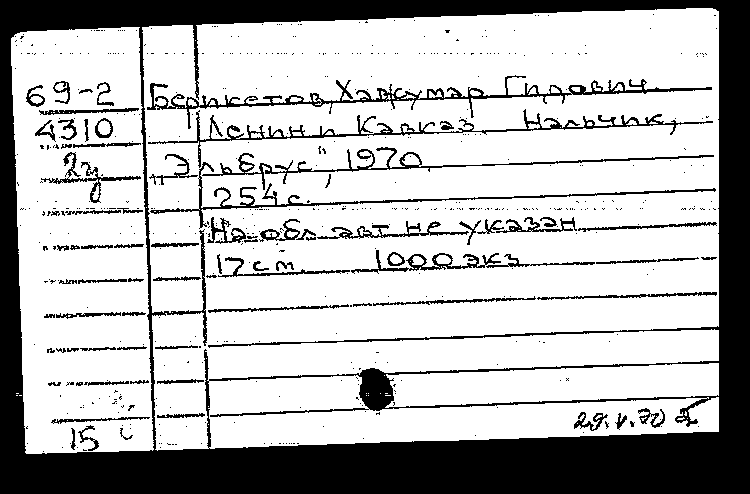 69-2 Берикетов, Хажумар Гидович.
4310 Ленин и Кавказ. Нальчик,
2ц „Эльбрус", 1970.
254 с.
На обл. авт. не указан
17 см. 1000 экз
15
29.V.70